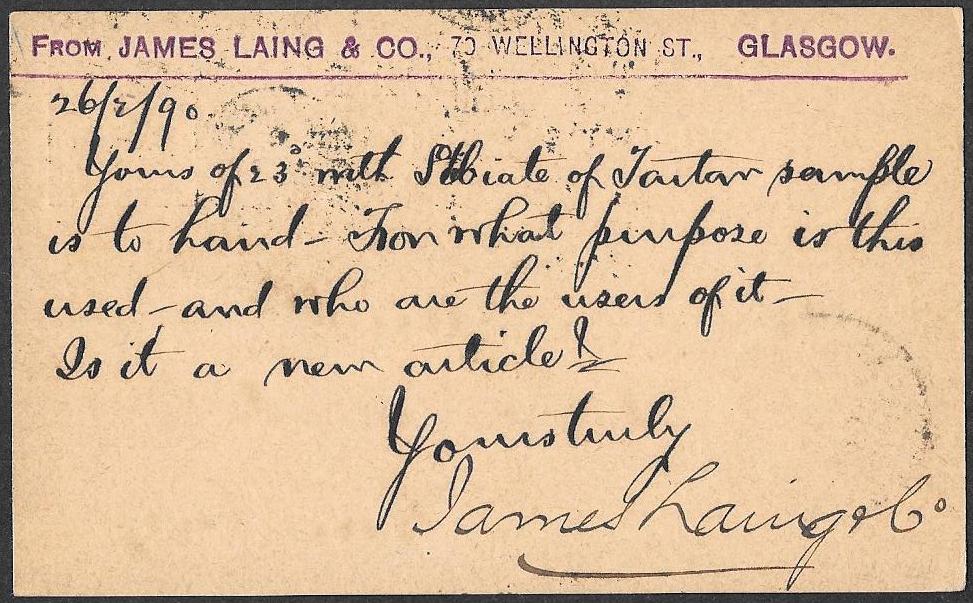 FROM JAMES LAING & CO., 70 WELLINGTON ST., GLASGOW.
26/2/90
Yours of 23d with Stibiate of Tartar sample
is to hand - For what purpose is this
used - and who are the users of it -
Is it a new article?
Yours truly
James Laing & Co